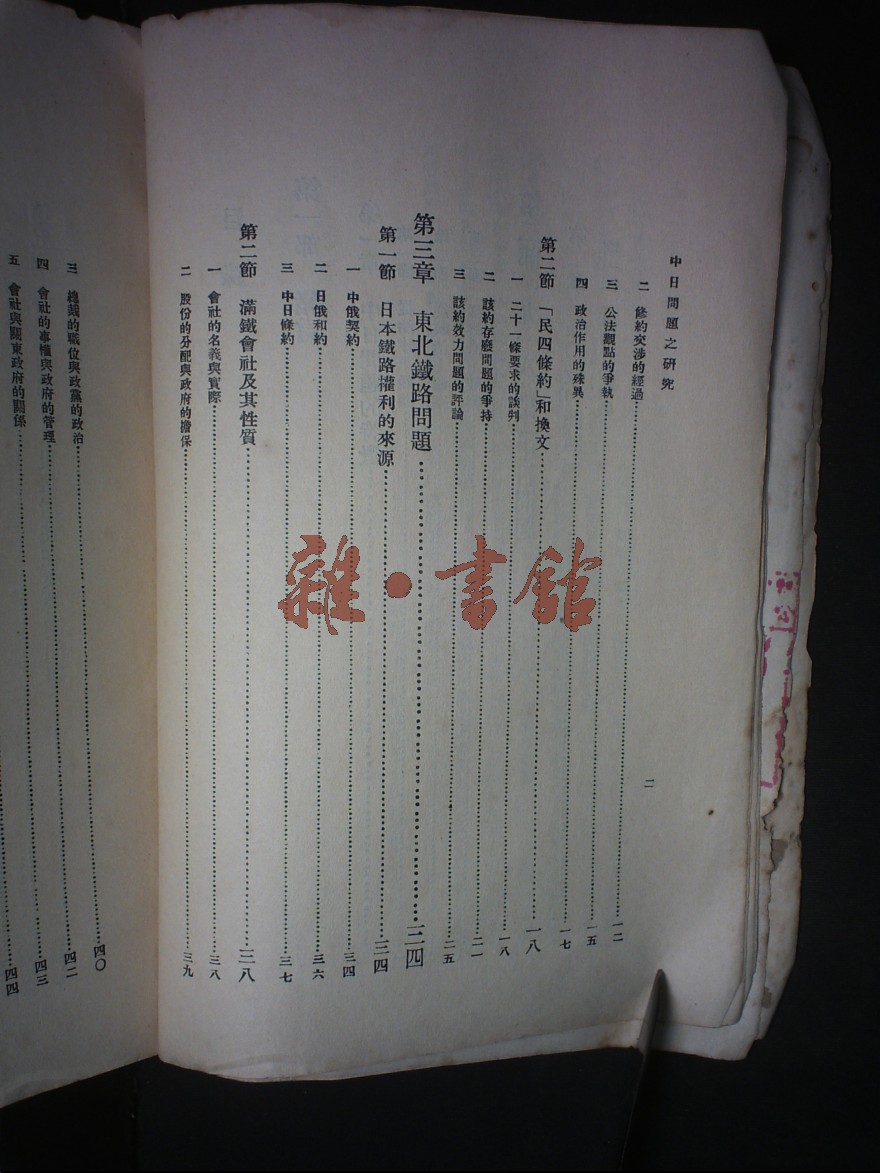 中日問題之研究
二
二 修約交涉的經過……一二
三 公法觀點的爭執……一五
四 政治作用的殊異……一七
第二節 「民四條約」和換文……一八
一 二十一條要求的談判……一八
二 該約存廢問題的爭持……二一
三 該約效力問題的評論……二五
第三章 東北鐵路問題……三四
第一節 日本鐵路權利的來源……三四
一 中俄契約……三四
二 日俄和約……三六
三 中日條約……三七
第二節 滿鐵會社及其性質……三八
一 會社的名義與實際……三八
二 股份的分配與政府的擔保……三九
三 總裁的職位與政黨的政治……四〇
四 會社的事權與政府的管理……四二
五 會社與關東政府的關係……四三
四四
雜·書館